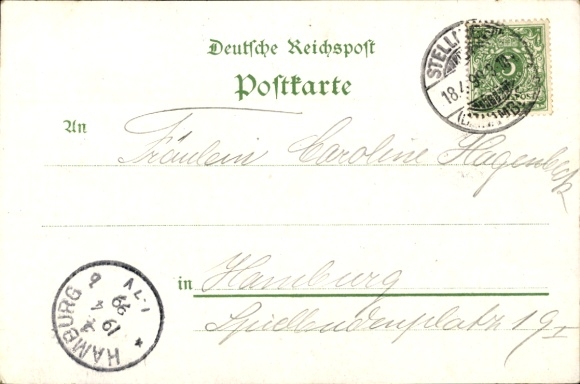 Deutsche Reichspost
Postkarte
An
Fräulein Caroline Hagenbeck
in Hamburg
Spielbudenplatz 19 I
STELLINGEN
18.4.99
5
HAMBURG
19 4 99